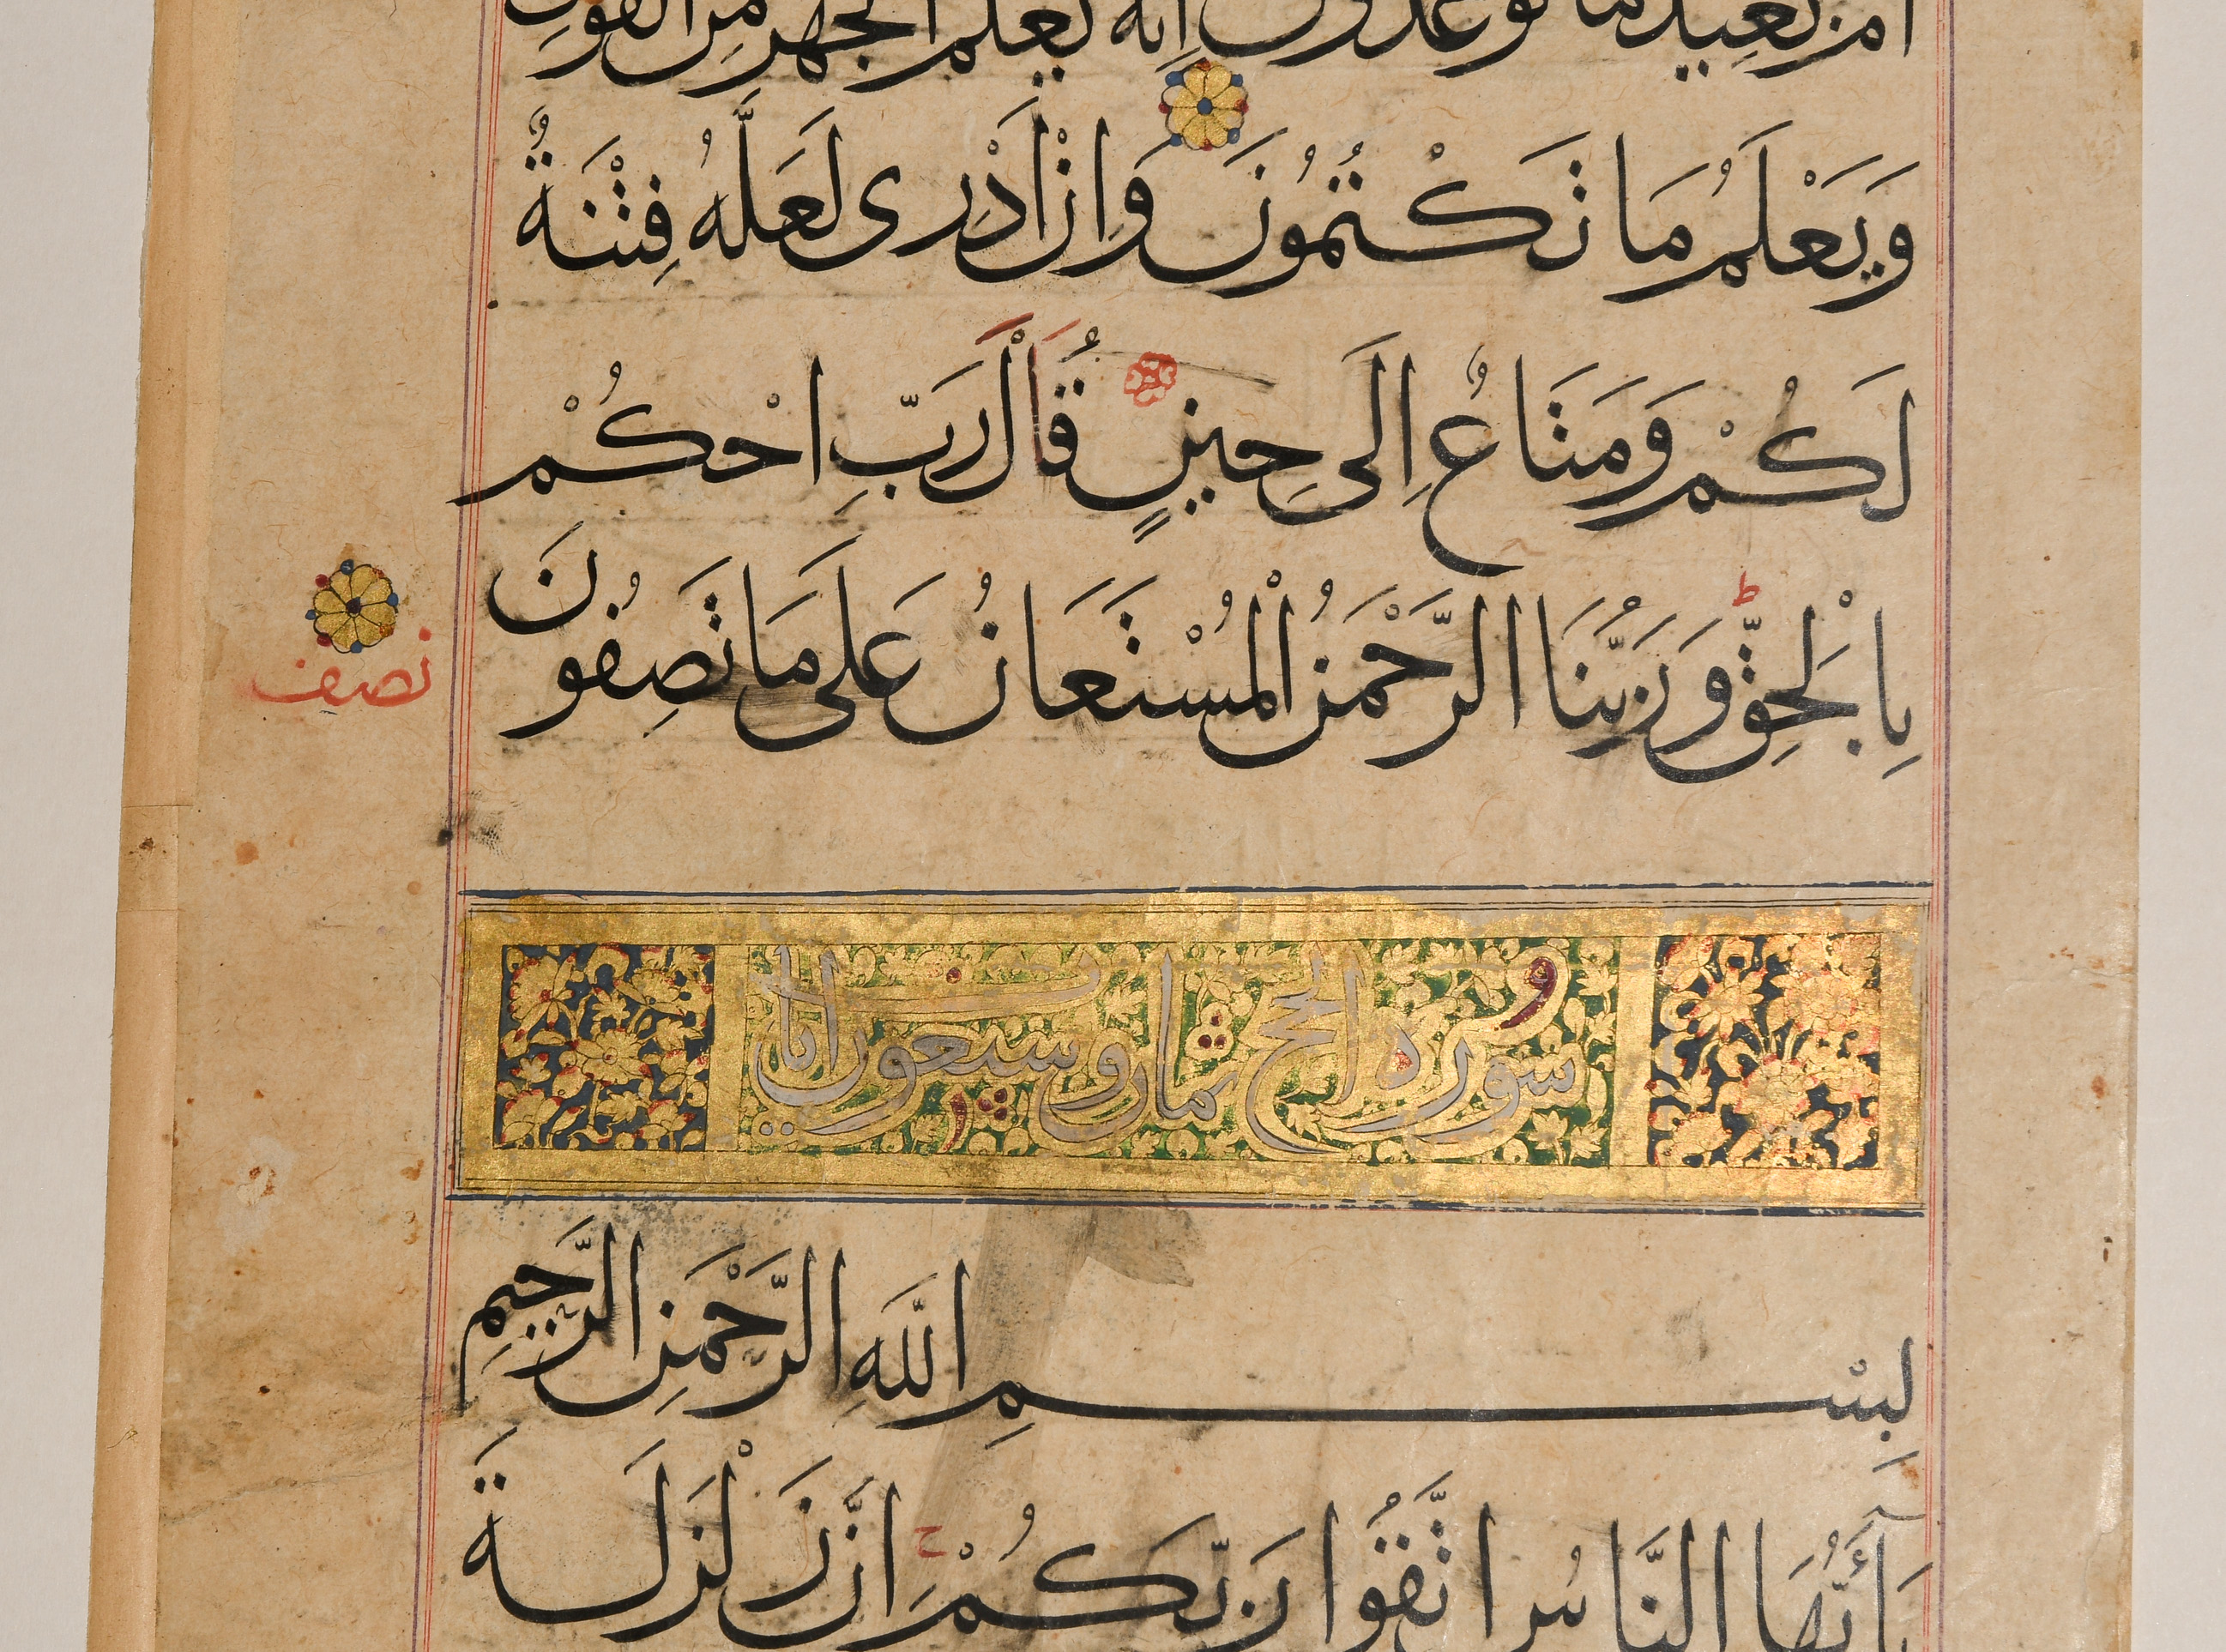 أم بعيد ما توعدون إنه يعلم الجهر من القول
وَيَعْلَمُ مَا تَكْتُمُونَ وَاِنْ اَدْرِى لَعَلَّهُ فِتْنَةٌ
لَكُمْ وَمَتَاعٌ اِلَى حِينٍ قَالَ رَبِّ احْكُمْ
بِالْحَقِّ وَرَبُّنَا الرَّحْمَنُ الْمُسْتَعَانُ عَلَى مَا تَصِفُونَ
نصف
سورة الحج ثمان وسبعون ايات
بِسْمِ اللَّهِ الرَّحْمَنِ الرَّحِيمِ
يَآ أَيُّهَا النَّاسُ اتَّقُوا رَبَّكُمْ اِنَّ زَلْزَلَةَ